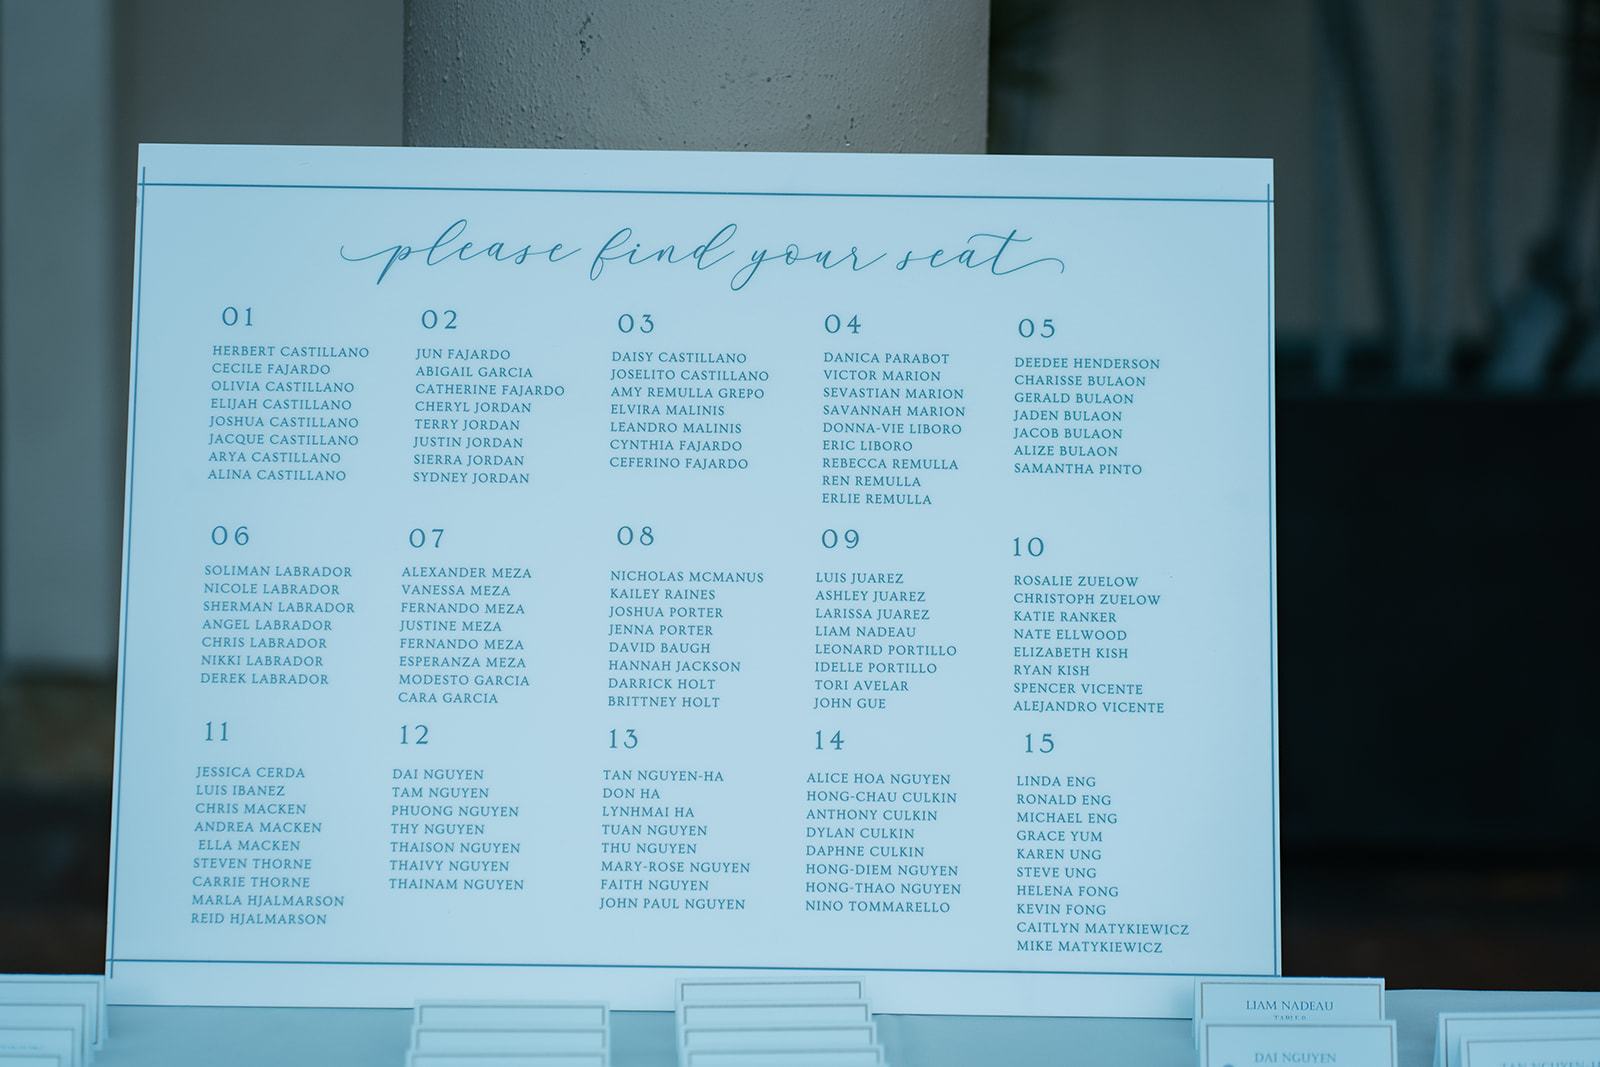 please find your seat
01
HERBERT CASTILLANO
CECILE FAJARDO
OLIVIA CASTILLANO
ELIJAH CASTILLANO
JOSHUA CASTILLANO
JACQUE CASTILLANO
ARYA CASTILLANO
ALINA CASTILLANO
02
JUN FAJARDO
ABIGAIL GARCIA
CATHERINE FAJARDO
CHERYL JORDAN
TERRY JORDAN
JUSTIN JORDAN
SIERRA JORDAN
SYDNEY JORDAN
03
DAISY CASTILLANO
JOSELITO CASTILLANO
AMY REMULLA GREPO
ELVIRA MALINIS
LEANDRO MALINIS
CYNTHIA FAJARDO
CEFERINO FAJARDO
04
DANICA PARABOT
VICTOR MARION
SEVASTIAN MARION
SAVANNAH MARION
DONNA-VIE LIBORO
ERIC LIBORO
REBECCA REMULLA
REN REMULLA
ERLIE REMULLA
05
DEEDEE HENDERSON
CHARISSE BULAON
GERALD BULAON
JADEN BULAON
JACOB BULAON
ALIZE BULAON
SAMANTHA PINTO
06
SOLIMAN LABRADOR
NICOLE LABRADOR
SHERMAN LABRADOR
ANGEL LABRADOR
CHRIS LABRADOR
NIKKI LABRADOR
DEREK LABRADOR
07
ALEXANDER MEZA
VANESSA MEZA
FERNANDO MEZA
JUSTINE MEZA
FERNANDO MEZA
ESPERANZA MEZA
MODESTO GARCIA
CARA GARCIA
08
NICHOLAS MCMANUS
KAILEY RAINES
JOSHUA PORTER
JENNA PORTER
DAVID BAUGH
HANNAH JACKSON
DARRICK HOLT
BRITTNEY HOLT
09
LUIS JUAREZ
ASHLEY JUAREZ
LARISSA JUAREZ
LIAM NADEAU
LEONARD PORTILLO
IDELLE PORTILLO
TORI AVELAR
JOHN GUE
10
ROSALIE ZUELOW
CHRISTOPH ZUELOW
KATIE RANKER
NATE ELLWOOD
ELIZABETH KISH
RYAN KISH
SPENCER VICENTE
ALEJANDRO VICENTE
11
JESSICA CERDA
LUIS IBANEZ
CHRIS MACKEN
ANDREA MACKEN
ELLA MACKEN
STEVEN THORNE
CARRIE THORNE
MARLA HJALMARSON
REID HJALMARSON
12
DAI NGUYEN
TAM NGUYEN
PHUONG NGUYEN
THY NGUYEN
THAISON NGUYEN
THAIVY NGUYEN
THAINAM NGUYEN
13
TAN NGUYEN-HA
DON HA
LYNHMAI HA
TUAN NGUYEN
THU NGUYEN
MARY-ROSE NGUYEN
FAITH NGUYEN
JOHN PAUL NGUYEN
14
ALICE HOA NGUYEN
HONG-CHAU CULKIN
ANTHONY CULKIN
DYLAN CULKIN
DAPHNE CULKIN
HONG-DIEM NGUYEN
HONG-THAO NGUYEN
NINO TOMMARELLO
15
LINDA ENG
RONALD ENG
MICHAEL ENG
GRACE YUM
KAREN UNG
STEVE UNG
HELENA FONG
KEVIN FONG
CAITLYN MATYKIEWICZ
MIKE MATYKIEWICZ
LIAM NADEAU
DAI NGUYEN